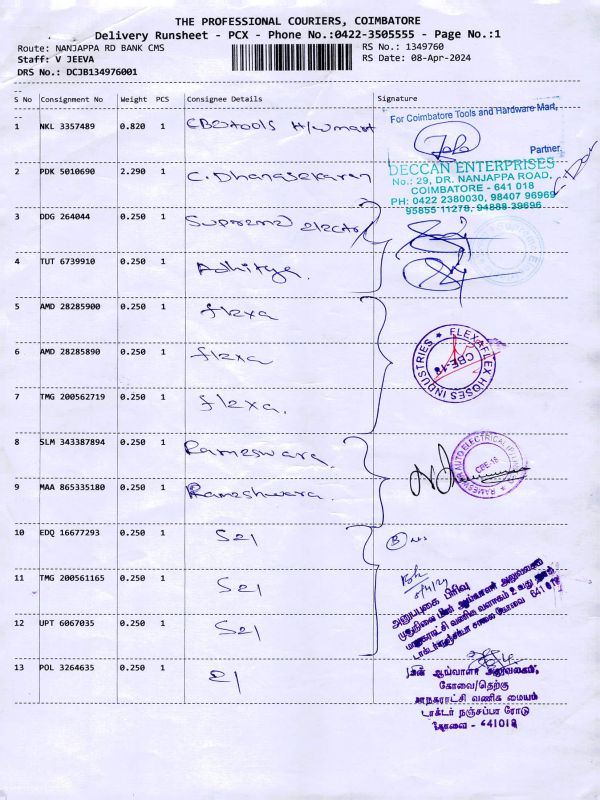 THE PROFESSIONAL COURIERS, COIMBATORE
Delivery Runsheet - PCX - Phone No.:0422-3505555 - Page No.:1
Route: NANJAPPA RD BANK CMS
RS No.: 1349760
Staff: V JEEVA
RS Date: 08-Apr-2024
DRS No.: DCJB134976001
S No Consignment No Weight PCS Consignee Details Signature
For Coimbatore Tools and Hardware Mart,
1 NKL 3357489 0.820 1 CBE tools H/w mart
Partner.
2 PDK 5010690 2.290 1 C. Dhanasekaran
DECCAN ENTERPRISES
No.: 29, DR. NANJAPPA ROAD,
COIMBATORE - 641 018
PH: 0422 2380030, 98407 96969
95855 11278, 94888 39696
3 DDG 264044 0.250 1 Supreme
4 TUT 6739910 0.250 1 Adhitya.
5 AMD 28285900 0.250 1 flexa
6 AMD 28285890 0.250 1 flexa
FLEXAFLEX HOSES INDUSTRIES
CBE-18
7 TMG 200562719 0.250 1 flexa.
8 SLM 343387894 0.250 1 Rameswara.
CBE-18
9 MAA 865335180 0.250 1 Rameshwara.
10 EDQ 16677293 0.250 1 S21
11 TMG 200561165 0.250 1 S21
அனுபுகை பிரிவு
641 018
12 UPT 6067035 0.250 1 S21
13 POL 3264635 0.250 1
கோவை/தெற்கு
மாநகராட்சி வணிக மையம்
டாக்டர் நஞ்சப்பா ரோடு
கோவை - 641018